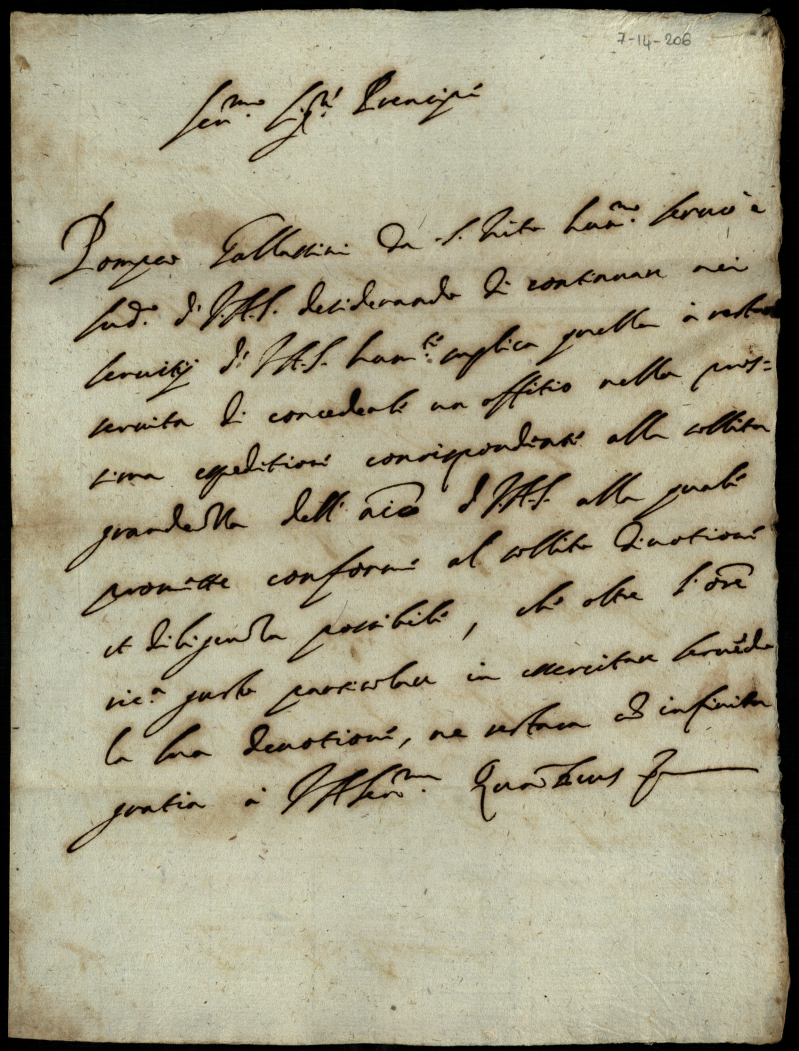 7-14-206
Ser.mo Sig.re Principe
Pompeo Gallassini da S. Vito hum.mo servo e
sud.o di V.A.S. desiderando di continuare nei
servitij di V.A.S. hum.te suplica quella à restar
servita di concederli un offitio nella pros=
sima espeditione corrispondente alla sollita
grandezza dell' di V.A.S. alla quale
promette conforme al sollito divotione
et diligenza possibile, che oltre
ric.a gusto particolare in esercitare servendo
la sua devotione, ne restarà cõ infinita
gratia à V.A.Ser.ma Quam Deus